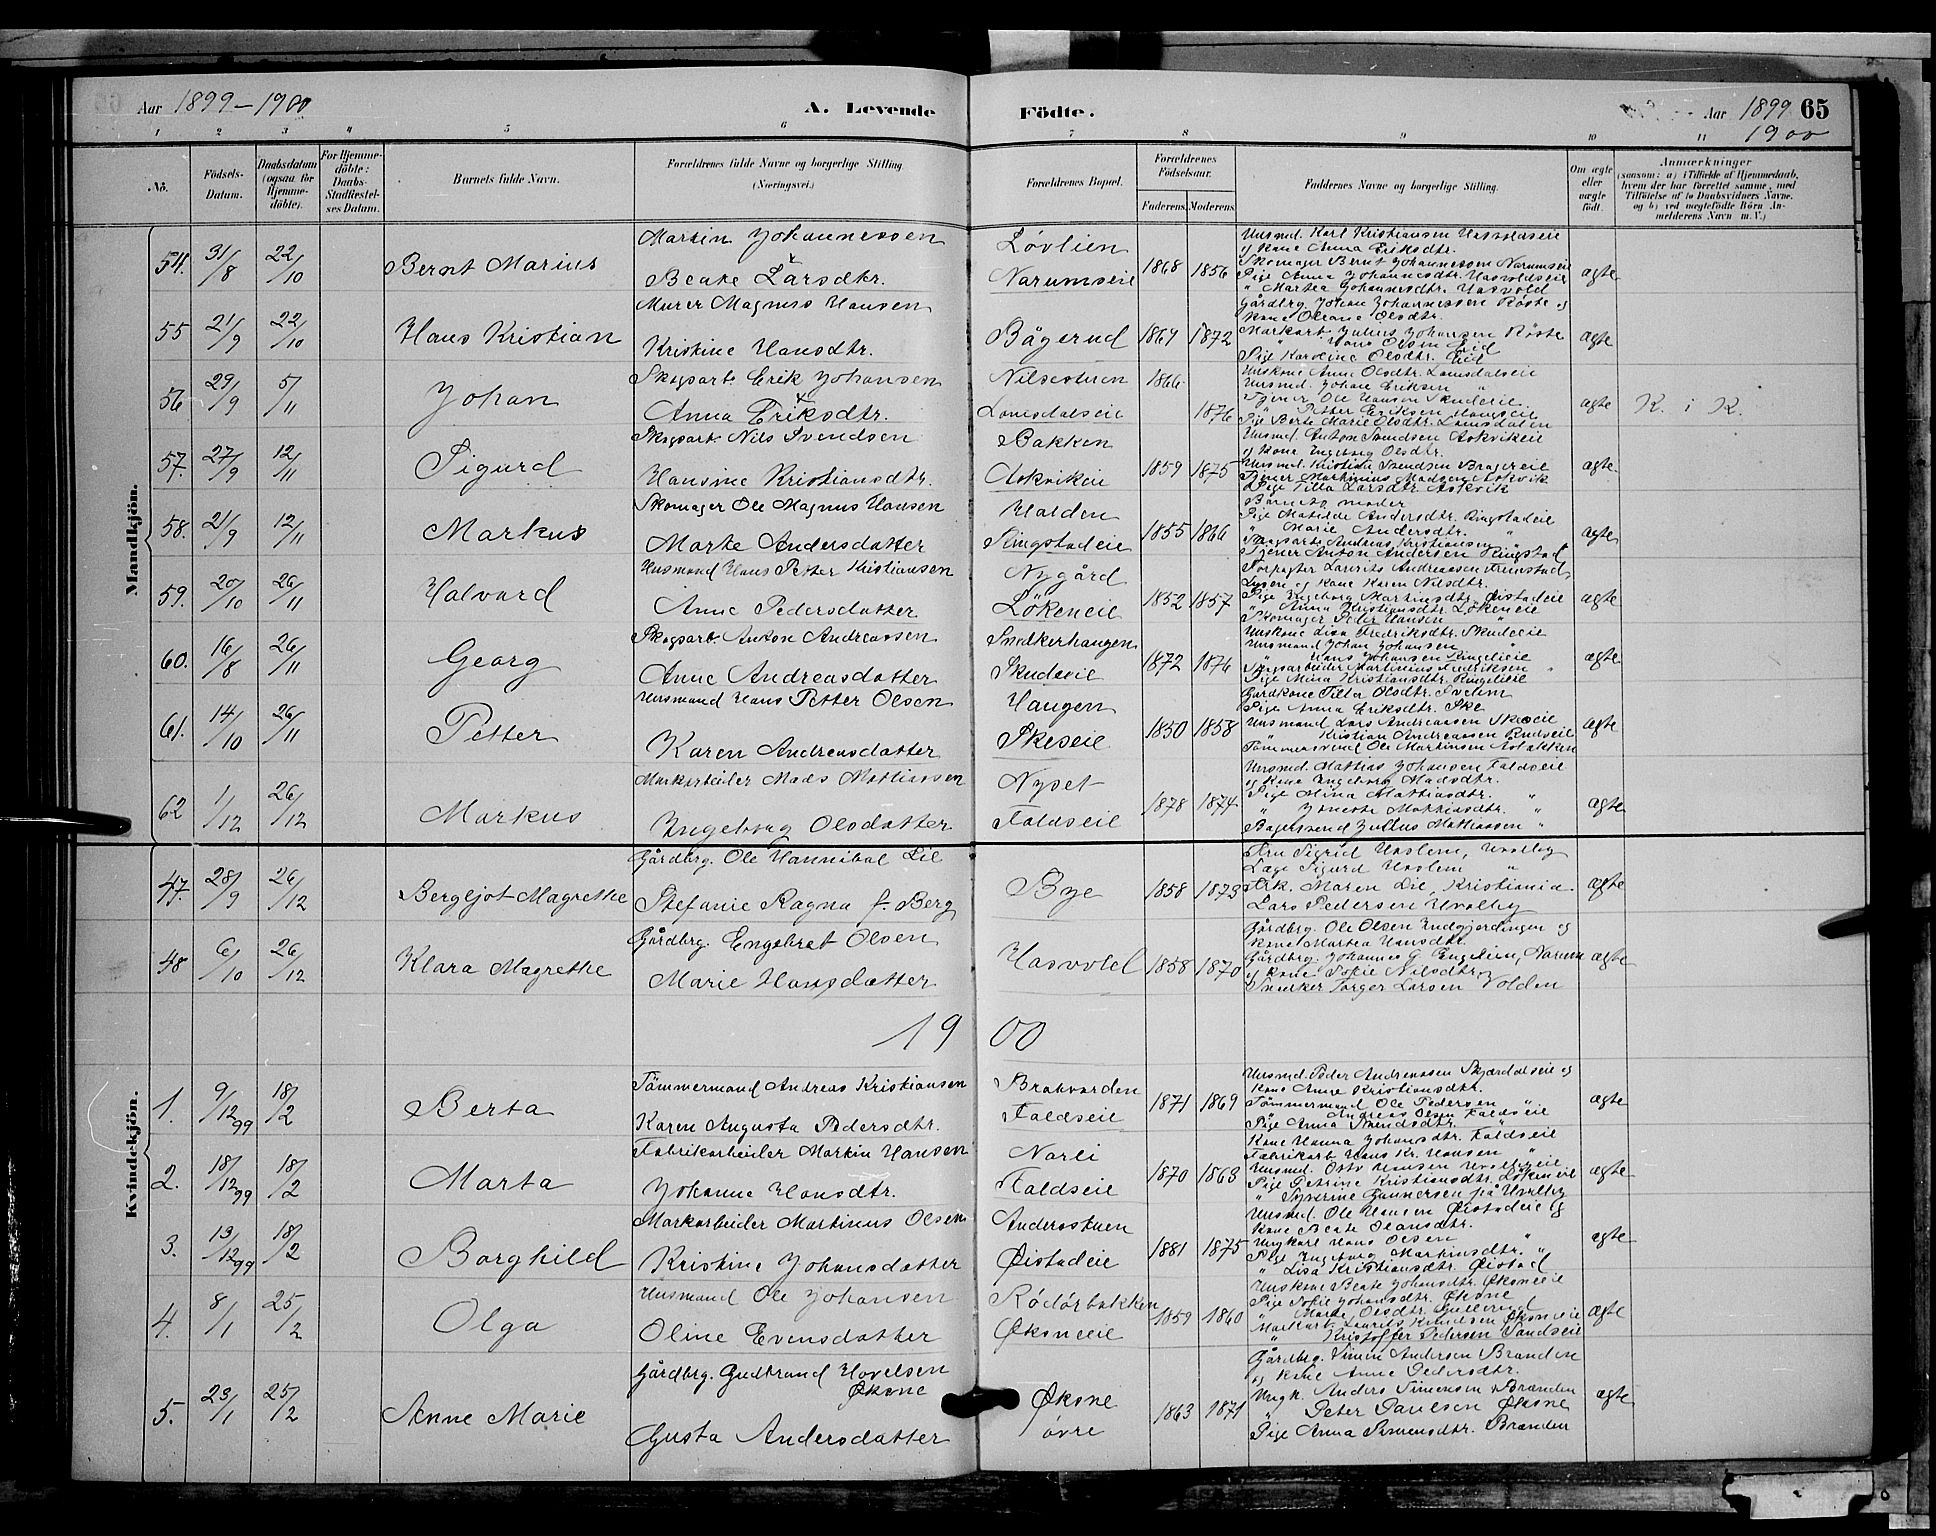 Aar 1899–1900 A. Levende Födte. Aar 1899 65
1900
1 2 3 4 5 6 7 8 9 10 11
No. Födsels-Datum. Daabsdatum (ogsaa for Hjemmedöbte). For Hjemmedöbte: Daabs-Stadfæstelses Datum. Barnets fulde Navn. Forældrenes fulde Navne og borgerlige Stilling. (Næringsvei.) Forældrenes Bopæl. Forældrenes Födselsaar. Faderens. Moderens. Faddernes Navne og borgerlige Stilling. Om ægte eller uægte födt. Anmærkninger (saasom: a) i Tilfælde af Hjemmedaab, hvem der har forrettet samme, med Tilföielse af to Daabsvidners Navne, og b) ved uægtefödte Börn Anmelderens Navn m. V.)
Mandkjön.
54. 31/8 22/10 Bernt Marius
Martin Johannessen
Beate Larsdtr.
Lövlien
Narumseie
1868 1856
Husmd. Karl Kristiansen Hasvoldseie
og Kone Anna Eriksdtr.
Skomager Bernt Johannessen Narumseie
Pige Anna Johannesdtr. Hasvoldseie
" Martea Johannesdtr. Hasvold
ægte
55 21/9 22/10 Hans Kristian
Murer Magnus Hansen
Kristine Hansdtr.
Bågerud
1864 1872
Gårdbrg. Johan Johannessen Röste og
Kone Oleane Olsdtr.
Markarb. Julius Johansen Röste
" Hans Olsen Eid
Pige Karoline Olsdtr. Eid
ægte
56 29/9 5/11 Johan
Skogsarb. Erik Johansen
Anna Eriksdtr.
Nilsesturen
Lomsdalseie
1866 1876
Huskone Anne Olsdtr. Lomsdalseie
Husmd. Johan Eriksen "
Tjener Ole Hansen Skuderie
" Petter Eriksen Haugseie
Pige Berte Marie Olsdtr. Lomsdalen
ægte K. i K.
57. 27/9 12/11 Sigurd
Skogsarb. Nils Svendsen
Hansine Kristiansdtr.
Bakken
Askvikeie
1859 1875
Husmd. Anton Svendsen Askvikeie
og Kone Ingeborg Olsdtr.
Husmd. Kristian Svendsen Bragereie
Tjener Martinius Madsen Askvik
Pige Tilla Larsdtr. Askvik
ægte
58. 21/9 12/11 Markus
Skomager Ole Magnus Hansen
Marte Andersdatter
Halden
Ringstadeie
1855 1866
Barnets moder
Pige Matilde Andersdtr. Ringstadeie
" Marie Andersdtr. "
Skogsarb. Andreas Kristiansen "
Tjener Anton Andersen Ringstad
ægte
59. 20/10 26/11 Halvard
Husmand Hans Petter Kristiansen
Anne Pedersdatter
Nygård
Lökeneie
1852 1857
Forpagter Laurits Andreassen
og Kone Karen Nilsdtr.
Pige Ingeborg Martinsdtr. Öistadeie
" Anna Kristiansdtr. Lökeneie
Skomager Peter Hansen "
ægte
60. 16/8 26/11 Georg
Skogsarb. Anton Andreassen
Anne Andreasdatter
Snedkerhaugen
Skudseie
1872 1876
Huskone Lisa Fredriksdtr. Skudseie
Husmand Johan Johansen "
" Hans Johansen Ringelieie
Skogsarbeider Martinius Fredriksen "
Pige Mina Kristiansdtr. Ringelieie
ægte
61. 14/10 26/11 Petter
Husmand Hans Petter Olsen
Karen Andreasdatter
Haugen
Skeseie
1850 1858
Gårdkone Tilla Olsdtr.
Pige Anna Eriksdtr. Ske
Husmand Lars Andreassen Skeseie
" Kristian Andreassen Rudseie
Tömmersvend Ole Martinsen
ægte
62 1/12 26/12 Markus
Markarbeider Mads Mattiassen
Ingeborg Olsdatter
Nyset
Faldseie
1878 1874
Husmd. Mathias Johansen Faldseie
og Kone Ingeborg Madsdtr.
Pige Mina Mattiasdtr. "
" Jonette Mattiasdtr. "
Bagersvend Julius Mattiassen "
ægte
Kvindekjön.
47. 28/9 26/12 Bergljot Magrethe
Gårdbrg. Ole Hannibal Lie
Stefanie Ragna f. Berg
Bye
1858 1873
Fru Sigrid Haslem, Hvalby
Læge Sigurd Haslem "
Frk. Maren Lie, Kristiania
Lars Pedersen Hvalby
ægte
48 6/10 26/12 Klara Magrethe
Gårdbrg. Engebret Olsen
Marie Hansdatter
Hasvold
1858 1870
Gårdbrg. Ole Olsen Endgjerdingen og
Kone Martea Hansdtr.
Gårdbrg. Johannes G. Engelien, Narum
og Kone Sofie Nilsdtr.
Snedker Torger Larsen Volden
ægte
1900
1. 9/12 99 18/2 Berta
Tömmermand Andreas Kristiansen
Karen Augusta Pedersdtr.
Brakvarden
Faldseie
1871 1869
Husmd. Peder Andreassen Skjærdalseie og
Kone Anne Kristiansdtr.
Tömmermand Ole Pedersen "
" Andreas Olsen Faldseie
Pige Anna Svendsdtr. "
ægte
2. 18/12 99 18/2 Marta
Fabrikarbeider Martin Hansen
Johanne Hansdtr.
Narli
Faldseie
1870 1863
Kone Hanna Johansdtr. Faldseie
Fabrikarb. Hans Kr. Hansen "
Husmd. Otto Hansen Hvalbyeie
Pige Petrine Kristiansdtr. Lökeneie
" Severine Gunnersen på Hvalby
ægte
3. 13/12 99 18/2 Borghild
Markarbeider Martinus Olsen
Kristine Johansdatter
Andersstuen
Øistadeie
1881 1875
Husmd. Ole Hansen Øistadeie og
Kone Beate Olsdtr.
Ungkarl Hans Olsen "
Pige Ingeborg Martinsdtr. "
" Lisa Kristiansdtr. Øistad
ægte
4. 8/1 25/2 Olga
Husmand Ole Johansen
Oline Evensdatter
Rödörbakken
Øksneeie
1859 1860
Huskone Beate Johansdtr. Øksneeie
Pige Sofie Johansdtr. Øksne
" Marte Olsdtr. Gullerud
Markarb. Laurits Knudsen Øksneeie
" Kristoffer Pedersen Sandseie
ægte
5. 23/1 25/2 Anne Marie
Gårdbrg. Gudbrand Hovelsen
Øksne
Gusta Andersdatter
Øksne
övre
1863 1871
Gårdbrg. Simen Andersen Branden
og Kone Anne Pedersdtr.
Ungk. Anders Simensen Branden
" Peter Paulsen Øksne
Pige Anna Simensdtr. Branden
ægte